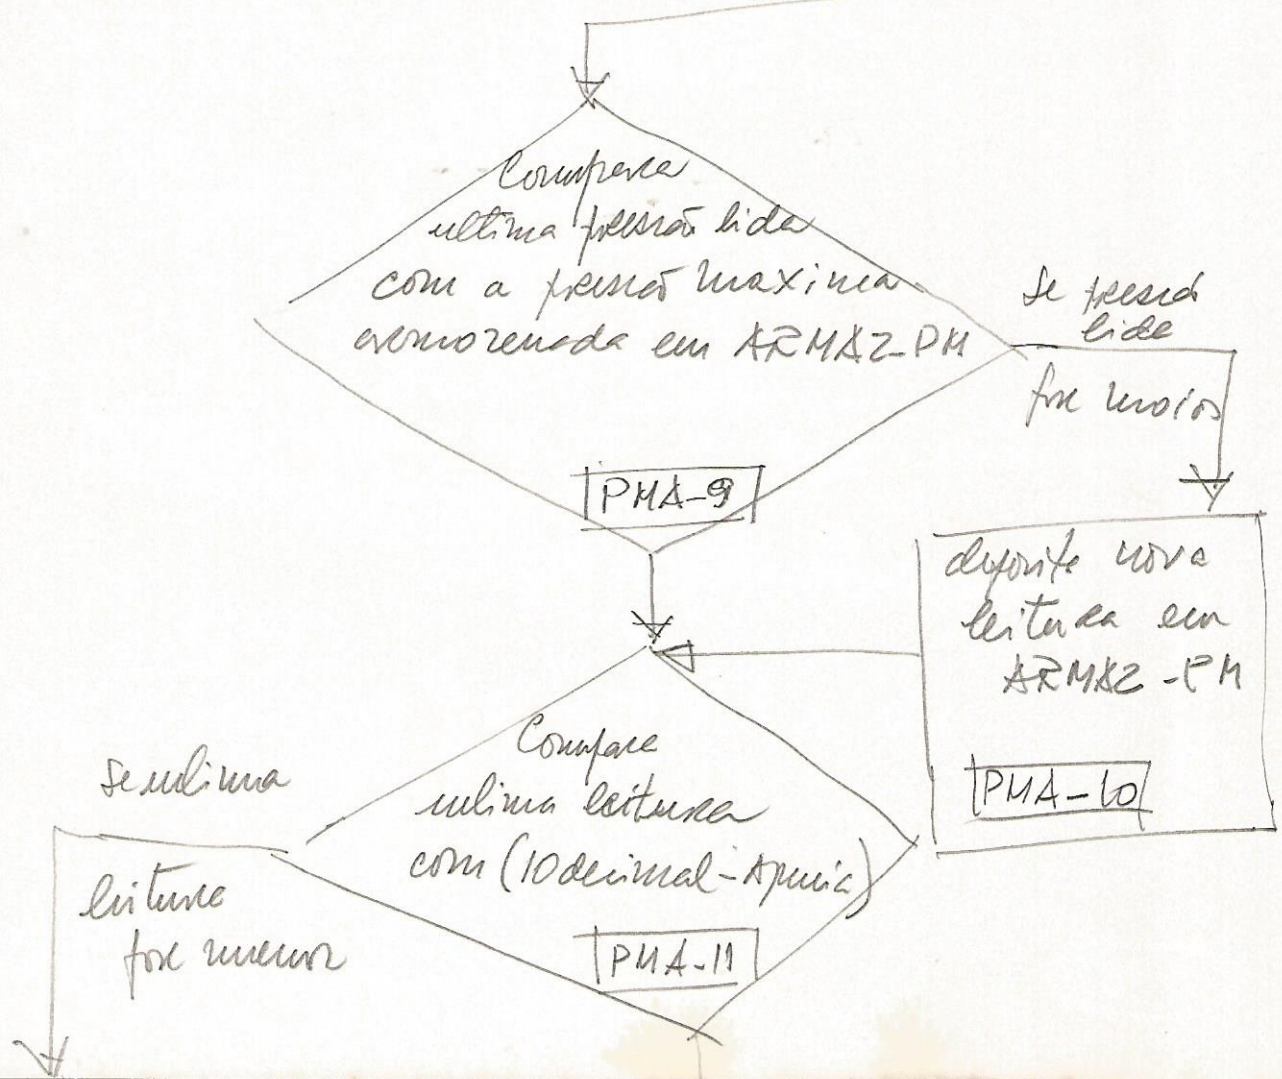 Compara
ultima pressão lida
com a pressão maxima
armazenada em ARMAZ-PM
PMA-9
se pressão
lida
for maior
deposite nova
leitura em
ARMAZ-PM
PMA-10
Compare
ultima leitura
com (10 decimal - Apneia)
PMA-11
se ultima
leitura
for menor